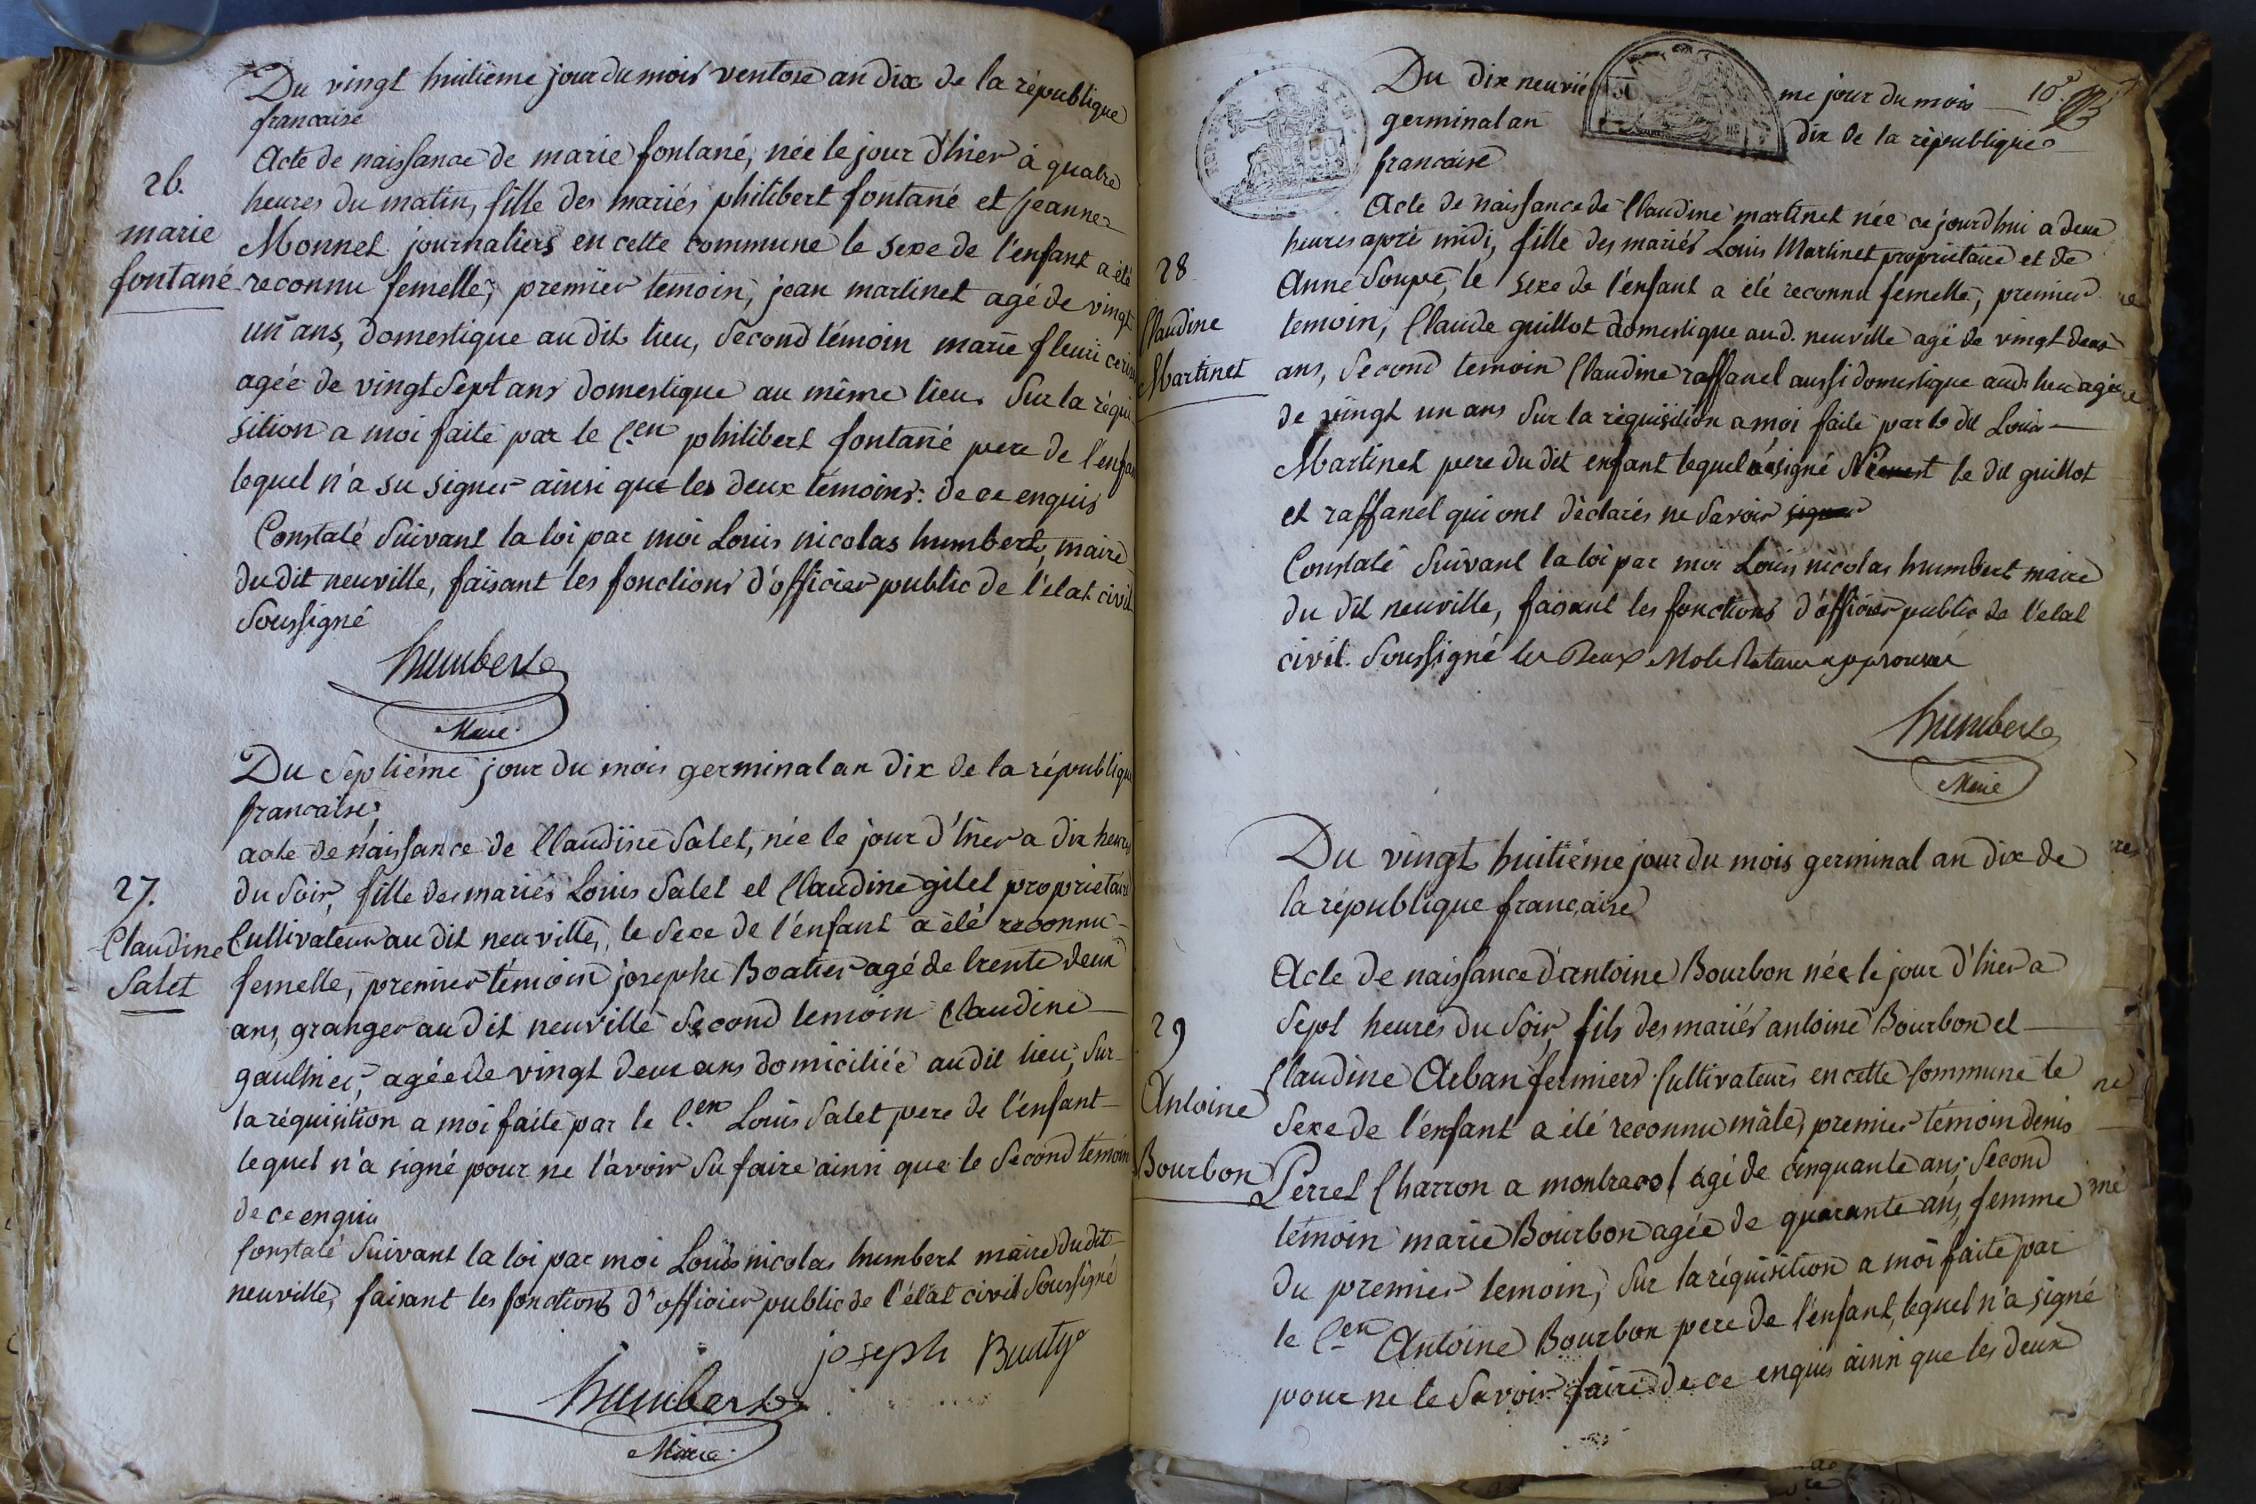 Du vingt huitieme jour du mois ventose an dix de la république
francaise
26.
marie
fontané
Acte de naissance de marie fontané, née le jour d'hier à quatre
heures du matin, fille des mariés philibert fontané et jeanne
Monnet journaliers en cette commune le sexe de l'enfant a été
reconnu femelle, premier temoin, jean martinet agé de vingt
un ans, domestique au dit lieu, second témoin marie fleuri
agée de vingt sept ans domestique au même lieu. Sur la réqui
sition a moi faite par le C.en philibert fontané pere de l'enfan
lequel n'a su signer ainsi que les deux témoins: de ce enquis
Constaté suivant la loi par moi Louis nicolas humbert, maire
du dit neuville, faisant les fonctions d'officier public de l'état civil
soussigné
humbert
Maire
Du septiéme jour du mois germinal an dix de la république
francaise,
27.
Claudine
Salet
acte de naissance de Claudine Salet, née le jour d'hier a dix heures
du soir, fille des mariés Louis Salet et Claudine gilet proprietaire
Cultivateur au dit neuville, le sexe de l'enfant a été reconnu
femelle, premier témoin josephe Boatier agé de trente deux
ans, granger au dit neuville second temoin Claudine
gaulthier, agée de vingt deux ans domiciliée au dit lieu, sur
la réquisition a moi faite par le C.en Louis Salet pere de l'enfant
lequel n'a signé pour ne l'avoir su faire ainsi que le second témoin
de ce enquis
Constaté suivant la loi par moi Louis nicolas humbert maire du dit
neuville, faisant les fonctions d'officier public de l'état civil soussigné
joseph
humbert
Maire
Du dix neuvié me jour du mois 10e
germinal an dix de la république
francaise
28
Claudine
Martinet
Acte de naissance de Claudine martinet née ce jourd'hui a deux
heures aprè midi, fille des mariés Louis Martinet propriétaire et de
Anne Soupe, le sexe de l'énfant a été reconnu femelle, premier
temoin, Claude guillot domestique aud. neuville agé de vingt deux
ans, second temoin Claudine raffanel aussi domestique aud. lieu agée
de vingt un ans sur la réquisition a moi faite par le dit Louis
Martinet pere du dit enfant lequel a signé le dit guillot
et raffanel qui ont déclarés ne savoir signer
Constaté suivant la loi par moi Louis nicolas humbert maire
du dit neuville, faisant les fonctions d'officier public de l'état
civil. soussigné les Deux Mots approuvé
humbert
Maire
Du vingt huitiéme jour du mois germinal an dix de
la république francaise
29
Antoine
Bourbon
Acte de naissance d'antoine Bourbon née le jour d'hier a
sept heures du soir, fils des mariés antoine Bourbon et
Claudine Arban fermiers Cultivateurs en cette Commune le
sexe de l'énfant a été reconnu mâle, premier témoin denis
Perret Charron a montracol agé de cinquante ans, second
témoin marie Bourbon agée de quarante ans, femme
du premier temoin, sur la réquisition a moi faite par
le C.en Antoine Bourbon pere de l'énfant, lequel n'a signé
pour ne le savoir faire de ce enquis ainsi que les deux